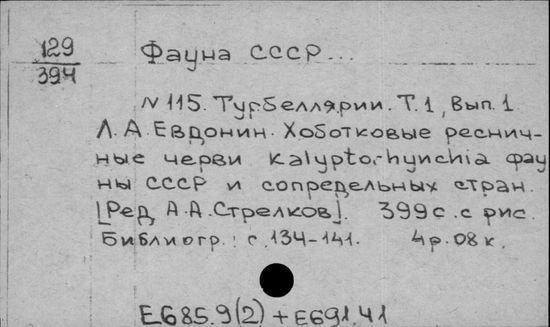 129
394
Фауна СССР ...
N 115. Турбеллярии. Т.1, Вып. 1
Л. А. Евдонин. Хоботковые реснич-
ные черви Kalyptorhynchia фау
ны СССР и сопредельных стран.
[Ред. А.А.Стрелков]. 399с. с рис.
Библиогр.: с.134-141. 4р.08к.
Е685.9(2) + Е691.41